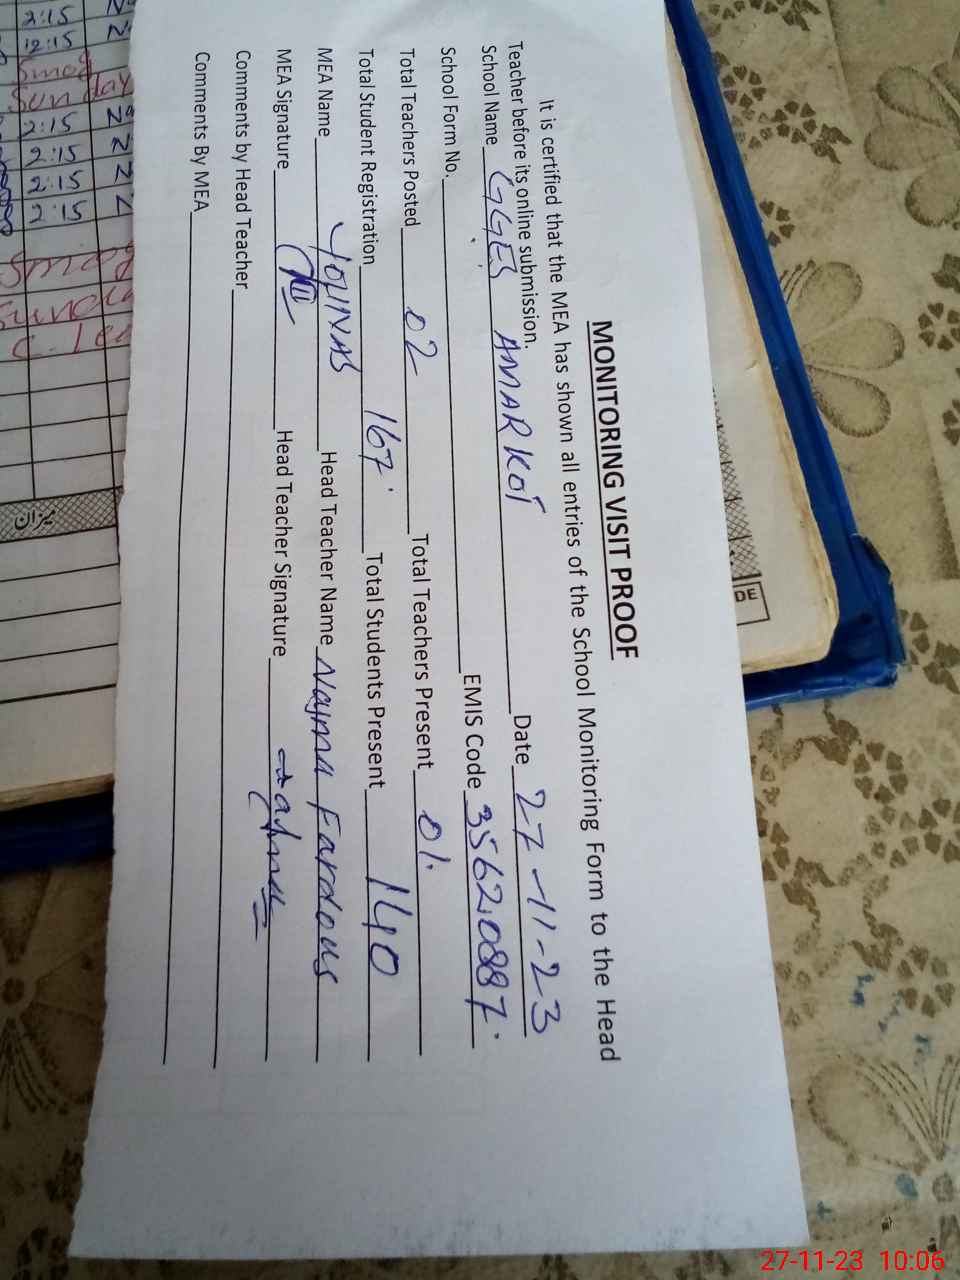 MONITORING VISIT PROOF
It is certified that the MEA has shown all entries of the School Monitoring Form to the Head
Teacher before its online submission.
School Name GGES AMARKOT Date 27-11-23
School Form No. EMIS Code 35620887.
Total Teachers Posted 02 Total Teachers Present 01.
Total Student Registration 167. Total Students Present 140
MEA Name YOUNAS Head Teacher Name Najma Fardous
MEA Signature Head Teacher Signature
Comments by Head Teacher
Comments By MEA
DE
2:15
12:15
Smog
Sunday
2:15
2:15
2:15
2:15
Smog
میزان
27-11-23 10:06